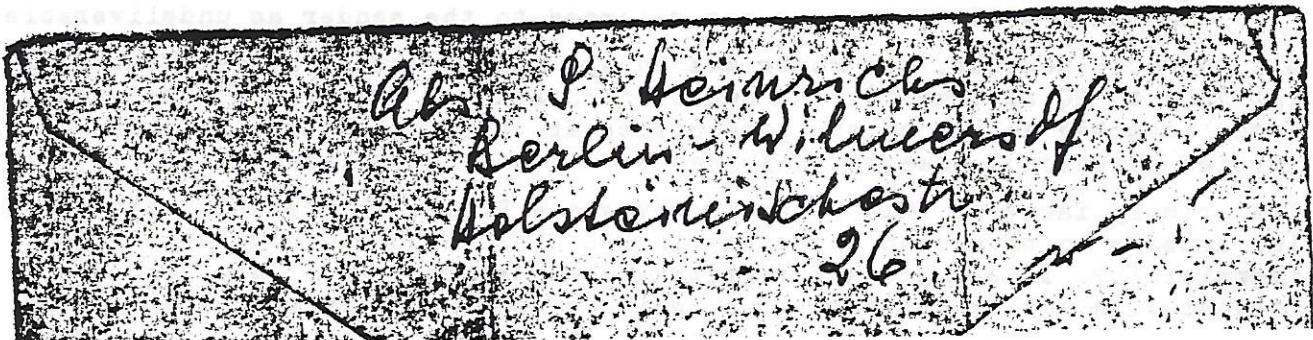 Abs P. Heinrichs
Berlin-Wilmersdf.
Holsteinischestr
26